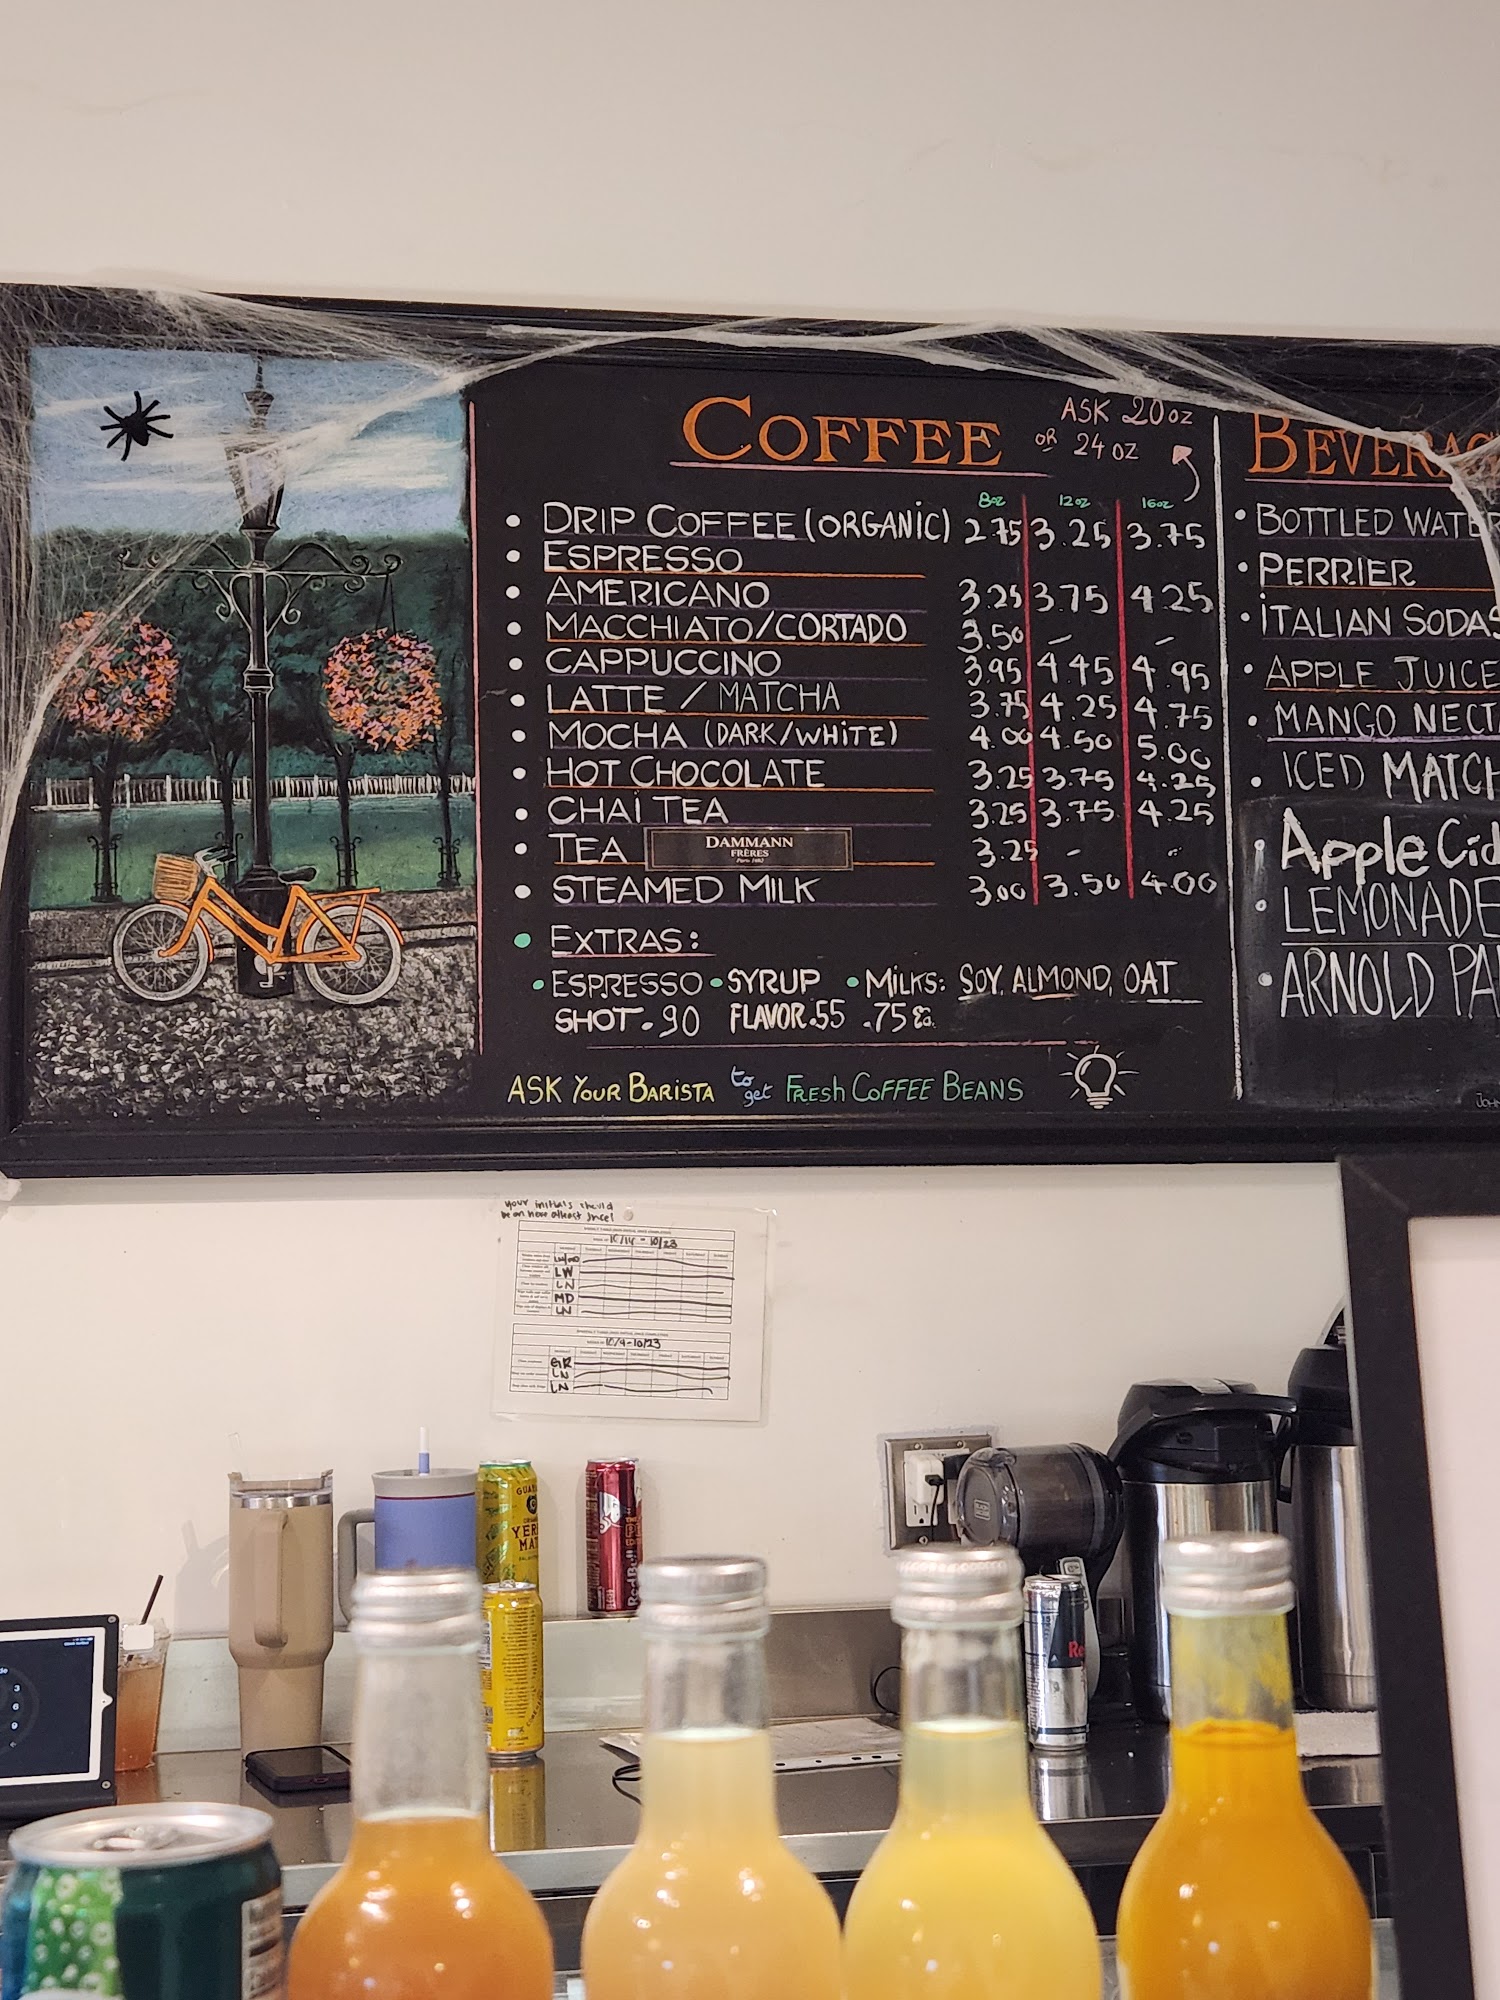 COFFEE
ASK 20 OZ
OR 24 OZ
8oz 12oz 16oz
• DRIP COFFEE (ORGANIC) 2.75 3.25 3.75
• ESPRESSO
• AMERICANO 3.25 3.75 4.25
• MACCHIATO/CORTADO 3.50 – –
• CAPPUCCINO 3.95 4.45 4.95
• LATTE / MATCHA 3.75 4.25 4.75
• MOCHA (DARK/WHITE) 4.00 4.50 5.00
• HOT CHOCOLATE 3.25 3.75 4.25
• CHAI TEA 3.25 3.75 4.25
• TEA DAMMANN FRÈRES 3.25 - -
• STEAMED MILK 3.00 3.50 4.00
• EXTRAS:
• ESPRESSO • SYRUP • MILKS: SOY, ALMOND, OAT
SHOT .90 FLAVOR .55 .75 Ea.
ASK YOUR BARISTA to get FRESH COFFEE BEANS
BEVERAG
• BOTTLED WATER
• PERRIER
• ITALIAN SODAS
• APPLE JUICE
• MANGO NECTA
• ICED MATCH
• Apple Cid
• LEMONADE
• ARNOLD PA
JOHN
your initials should
be on here atleast once!
10/14 - 10/23
LW
LN
MD
LN
10/9-10/23
GR
LN
LN
GUAYA
YER
MAT
RedBull
Re
3
6
9